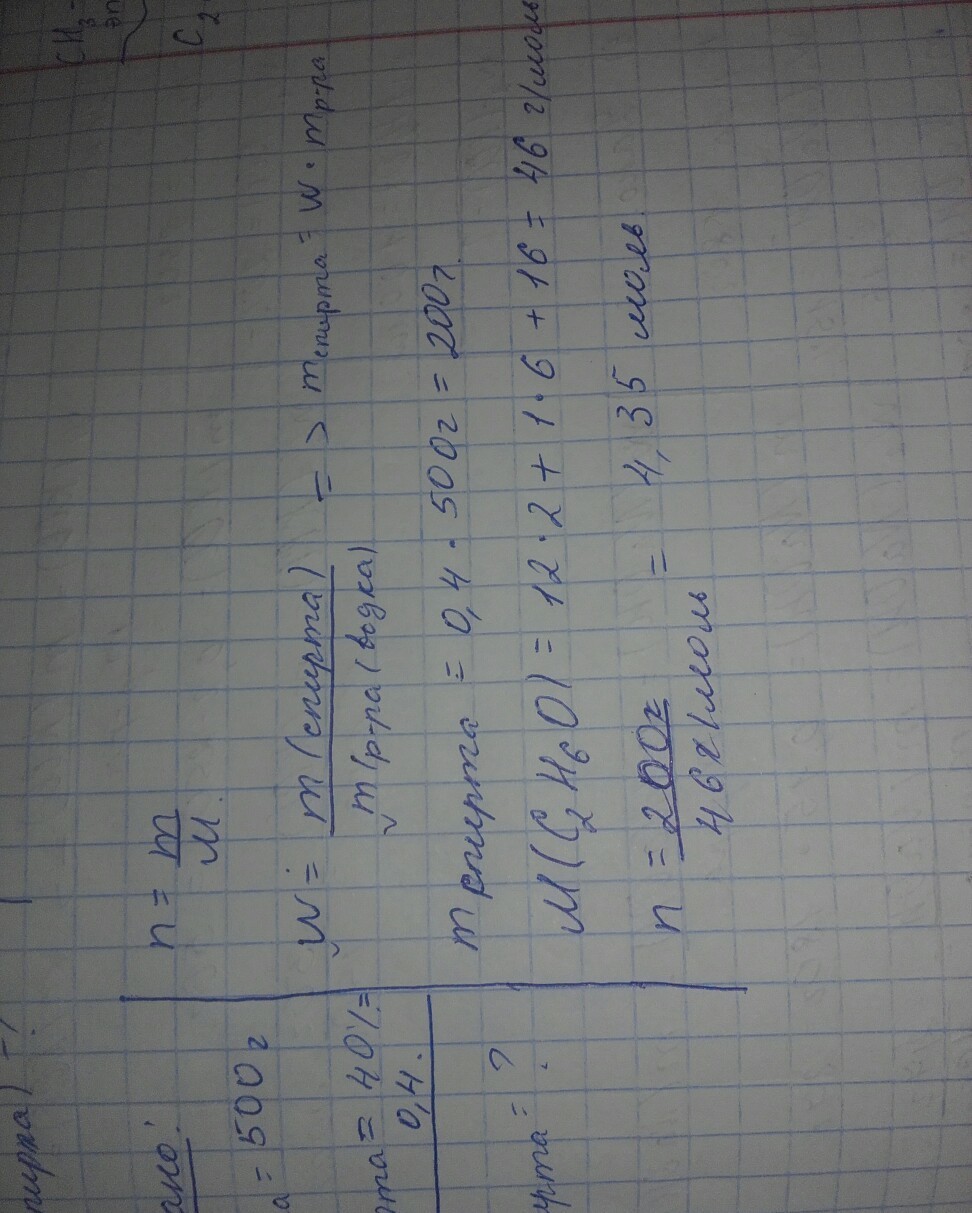 CH₃-
эп
C₂
пирта) - ?
ано:
а = 500 г
рта = 40% =
0,4.
ирта = ?
n = m/M
W = m(спирта) / m(р-ра(водка) => mспирта = W · mр-ра
mспирта = 0,4 · 500г = 200г.
M(C₂H₆O) = 12·2 + 1·6 + 16 = 46 г/моль
n = 200г / 46г/моль = 4,35 моль.